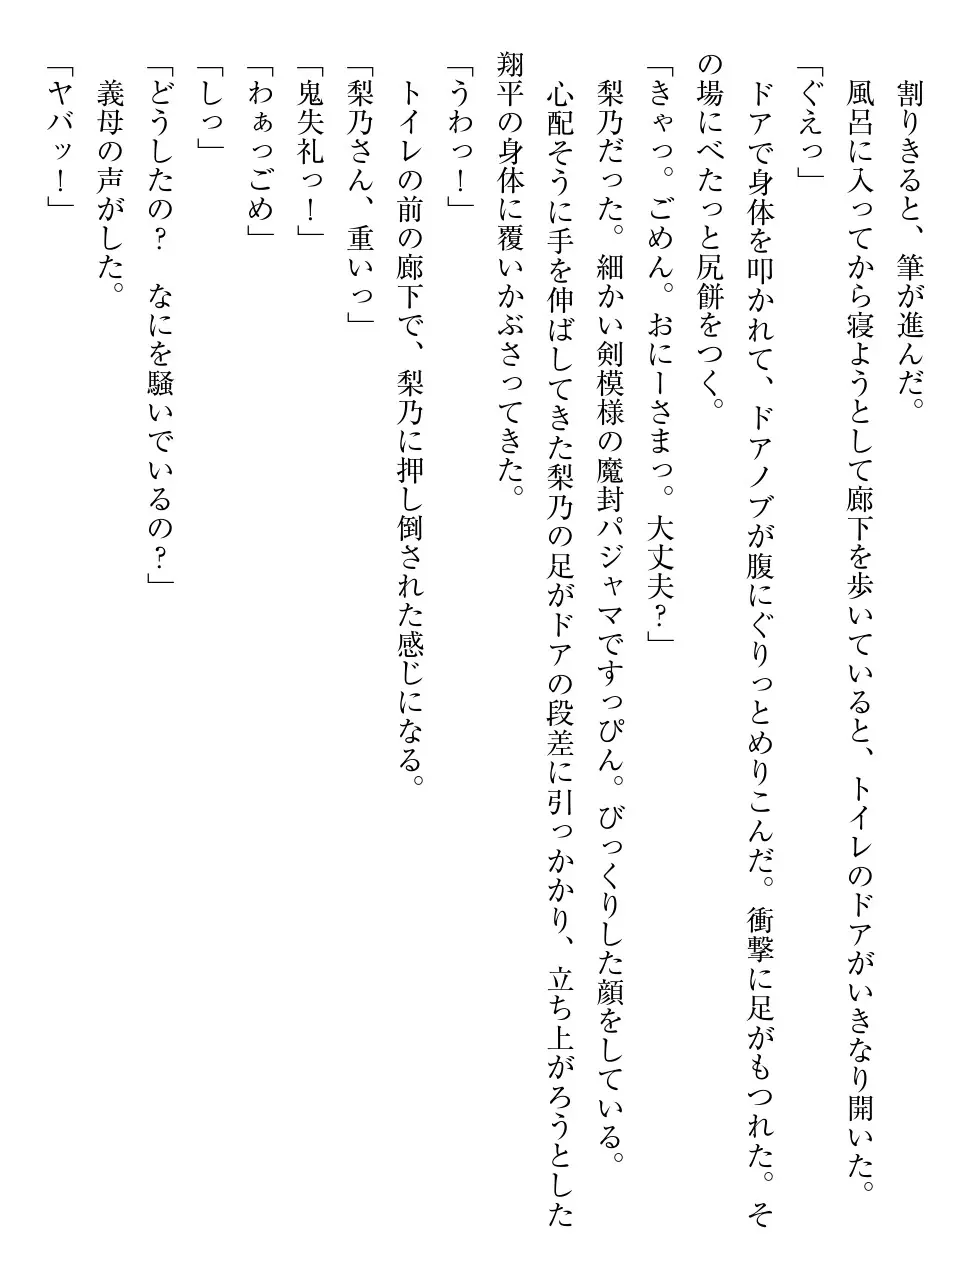 割りきると、筆が進んだ。
風呂に入ってから寝ようとして廊下を歩いていると、トイレのドアがいきなり開いた。
「ぐえっ」
ドアで身体を叩かれて、ドアノブが腹にぐりっとめりこんだ。衝撃に足がもつれた。そ
の場にべたっと尻餅をつく。
「きゃっ。ごめん。おにーさまっ。大丈夫?」
梨乃だった。細かい剣模様の魔封パジャマですっぴん。びっくりした顔をしている。
心配そうに手を伸ばしてきた梨乃の足がドアの段差に引っかかり、立ち上がろうとした
翔平の身体に覆いかぶさってきた。
「うわっ!」
トイレの前の廊下で、梨乃に押し倒された感じになる。
「梨乃さん、重いっ」
「鬼失礼っ!」
「わぁっごめ」
「しっ」
「どうしたの? なにを騒いでいるの?」
義母の声がした。
「ヤバッ!」